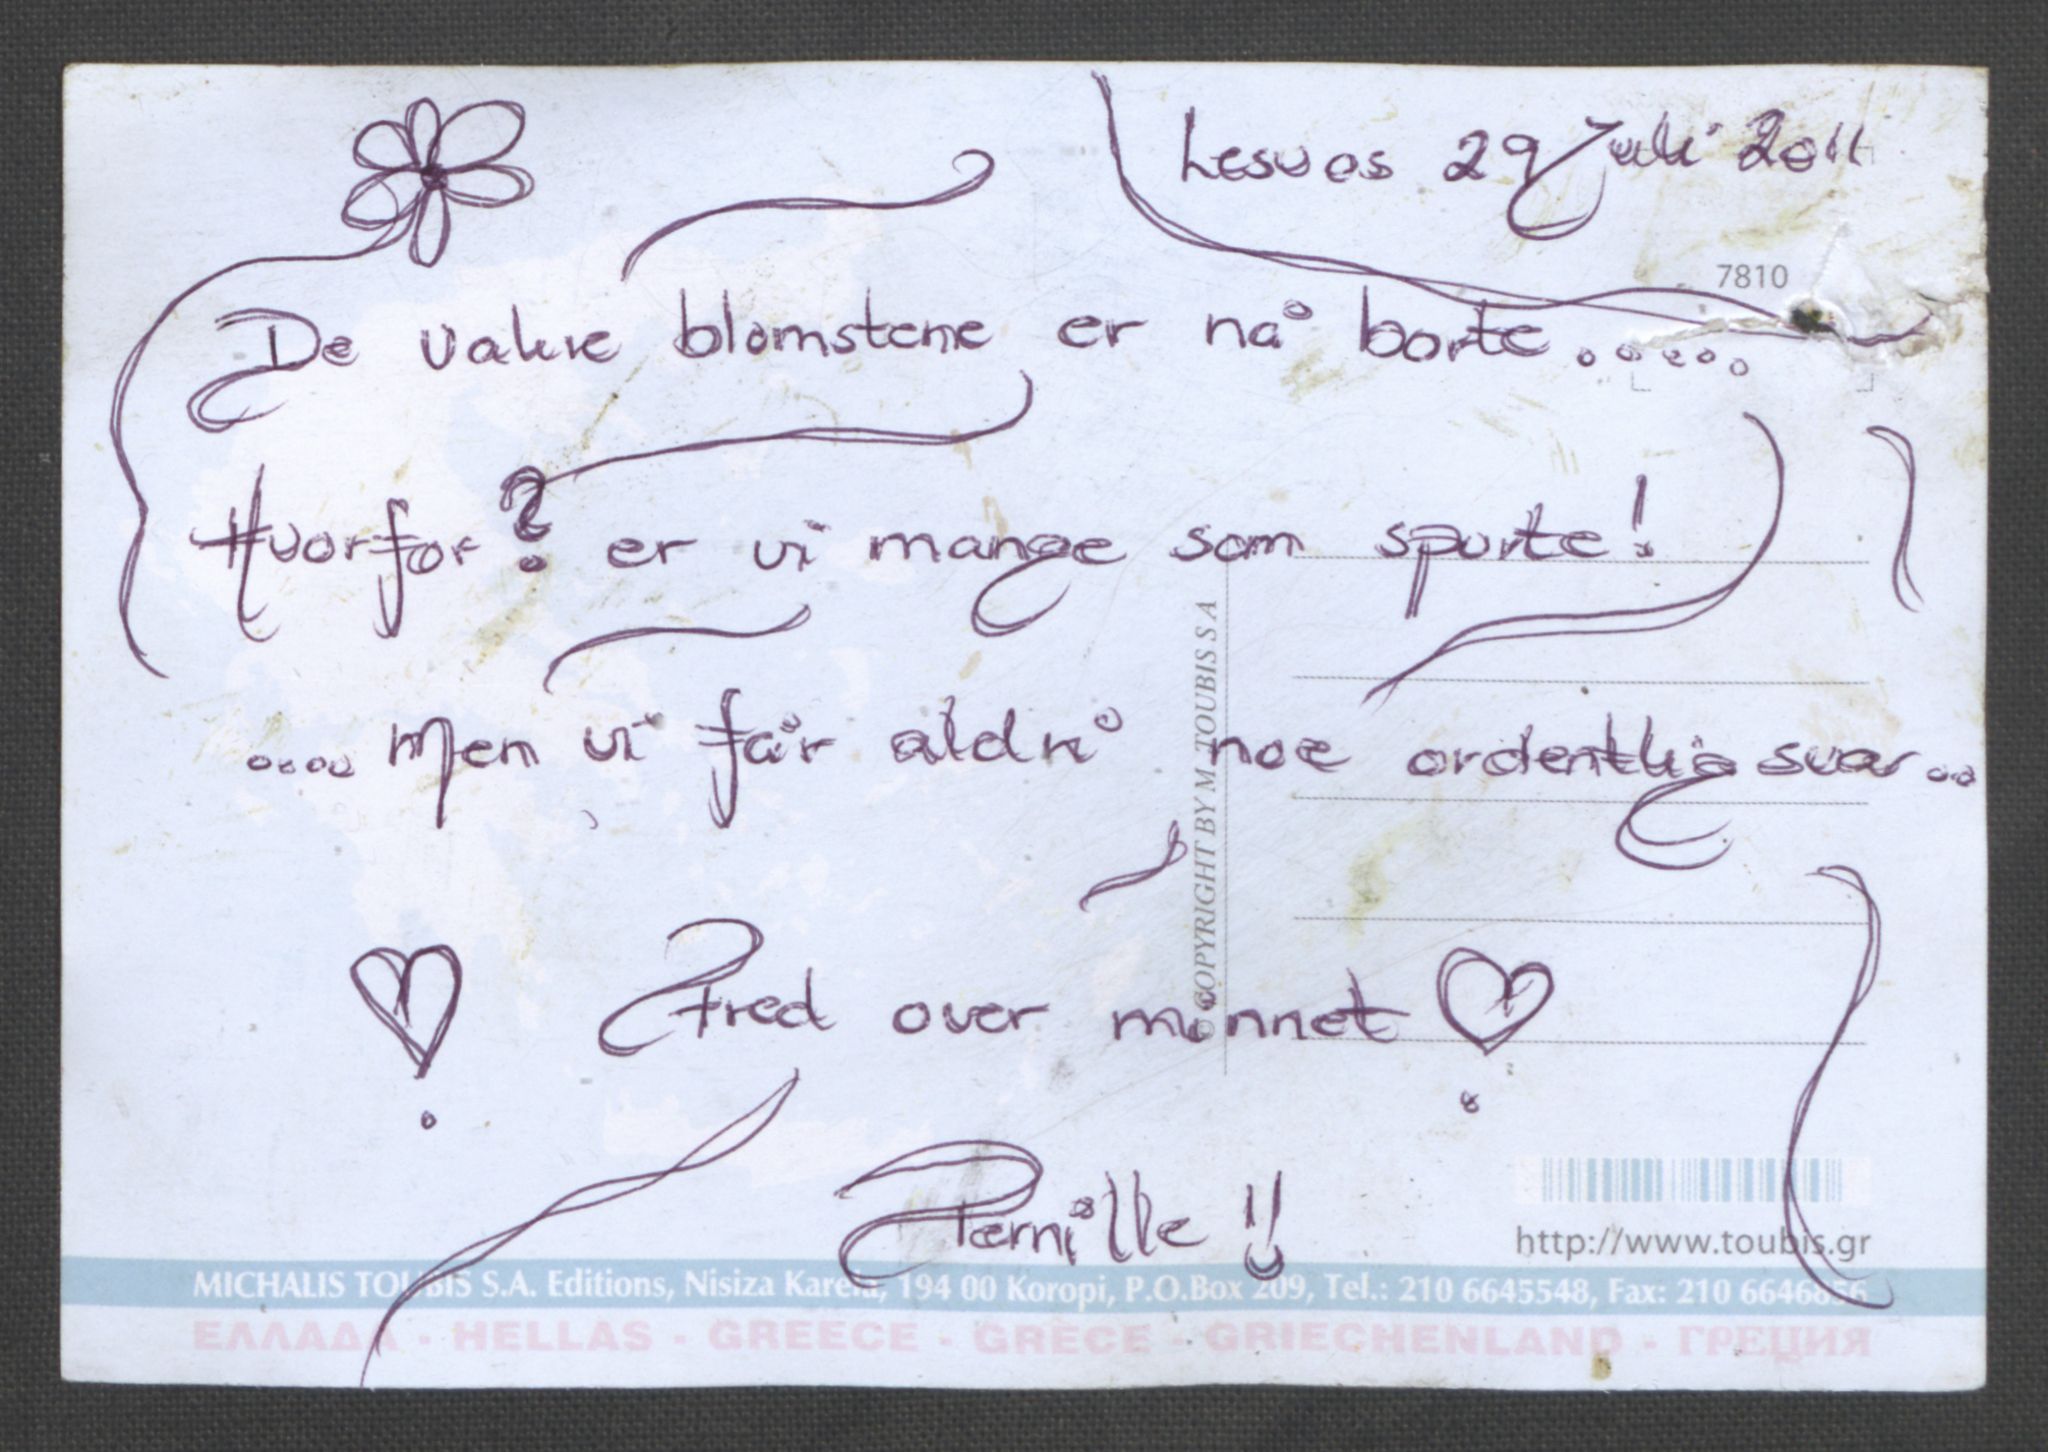 Lesvos 29 Juli 2011
7810
De vakre blomstene er nå borte.....
Hvorfor? er vi mange som spurte!
.... men vi får aldri noe ordentlig svar..
Fred over minnet
Pernille!!
© COPYRIGHT BY M. TOUBIS S A
http://www.toubis.gr
MICHALIS TOUBIS S.A. Editions, Nisiza Karela, 194 00 Koropi, P.O.Box 209, Tel.: 210 6645548, Fax: 210 6646856
ΕΛΛΑΔΑ - HELLAS - GREECE - GRÈCE - GRIECHENLAND - ГРЕЦИЯ